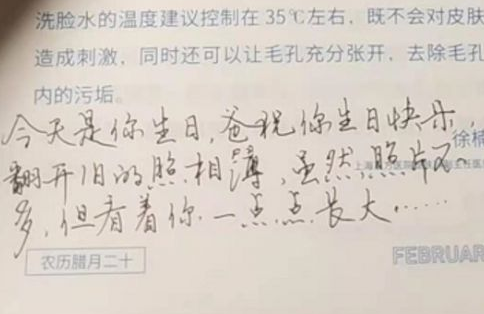 洗脸水的温度建议控制在35℃左右,既不会对皮肤
造成刺激,同时还可以让毛孔充分张开,去除毛孔
内的污垢。
今天是你生日,爸祝你生日快乐,
徐楠
翻开旧的照相薄,虽然照片不
多,但看着你一点点长大……
农历腊月二十
FEBRUAR